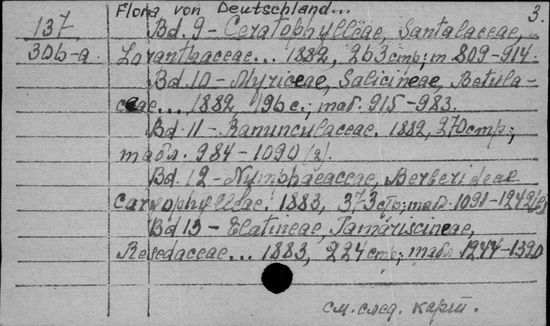 Flora von Deutschland... 3.
137 Bd. 9 - Ceratophylleae, Santalaceae,
306-a Loranthaceae... 1882, 263 стр; т 809-914.
Bd. 10 - Myriceae, Salicineae, Betula-
ceae... 1882, 196 с.; таб. 915-983.
Bd. 11 - Ranunculaceae. 1882, 270 стр;
табл. 984-1090(2).
Bd. 12 - Nymphaeaceae, Berberideae
Caryophylleae. 1883, 373 стр; табл. 1091-1242
Bd 13 - Elatineae, Tamariscineae,
Resedaceae... 1883, 224 стр; табл 1244-1320
см. след. карт.